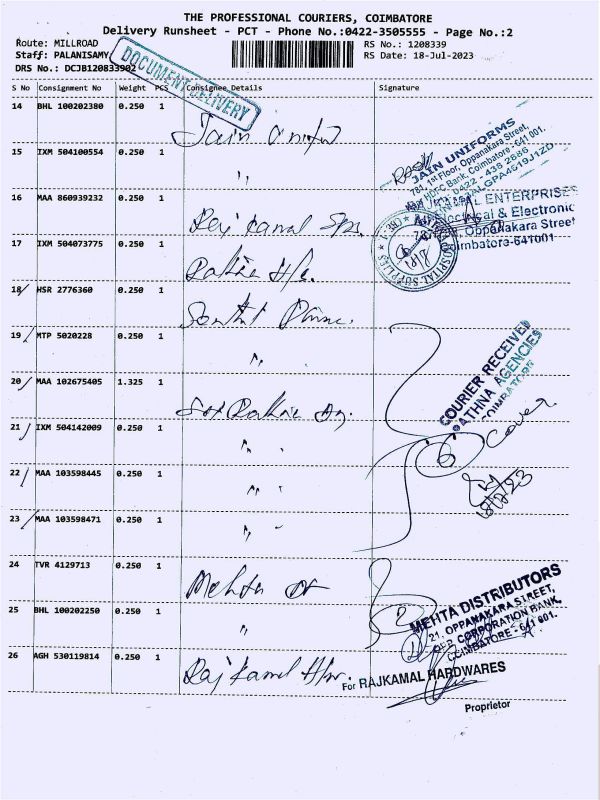 THE PROFESSIONAL COURIERS, COIMBATORE
Delivery Runsheet - PCT - Phone No.:0422-3505555 - Page No.:2
Route: MILLROAD
Staff: PALANISAMY
DRS No.: DCJB120833902
RS No.: 1208339
RS Date: 18-Jul-2023
DOCUMENT DELIVERY
S No Consignment No Weight PCS Consignee Details Signature
14 BHL 100202380 0.250 1
Jain
15 IXM 504100554 0.250 1
"
JAIN UNIFORMS
1st Floor, Oppanakara Street,
HDFC Bank, Coimbatore - 641 001.
16 MAA 860939232 0.250 1
Raj Kamal
ENTERPRISES
Electrical & Electronic
Oppanakara Street
Coimbatore-641001
HOSPITAL SUPPLIES
18/7
17 IXM 504073775 0.250 1
18 HSR 2776360 0.250 1
19 MTP 5020228 0.250 1
"
20 MAA 102675405 1.325 1
COURIER RECEIVED
ATHNA AGENCIES
COIMBATORE
21 IXM 504142009 0.250 1
" "
6 Cover
22 MAA 103598445 0.250 1
" "
18/7/23
23 MAA 103598471 0.250 1
" "
24 TVR 4129713 0.250 1
Mehta
25 BHL 100202250 0.250 1
"
2
MEHTA DISTRIBUTORS
21, OPPANAKARA STREET,
CORPORATION BANK,
COIMBATORE - 641 001.
26 AGH 530119814 0.250 1
Raj Kamal
For RAJKAMAL HARDWARES
Proprietor